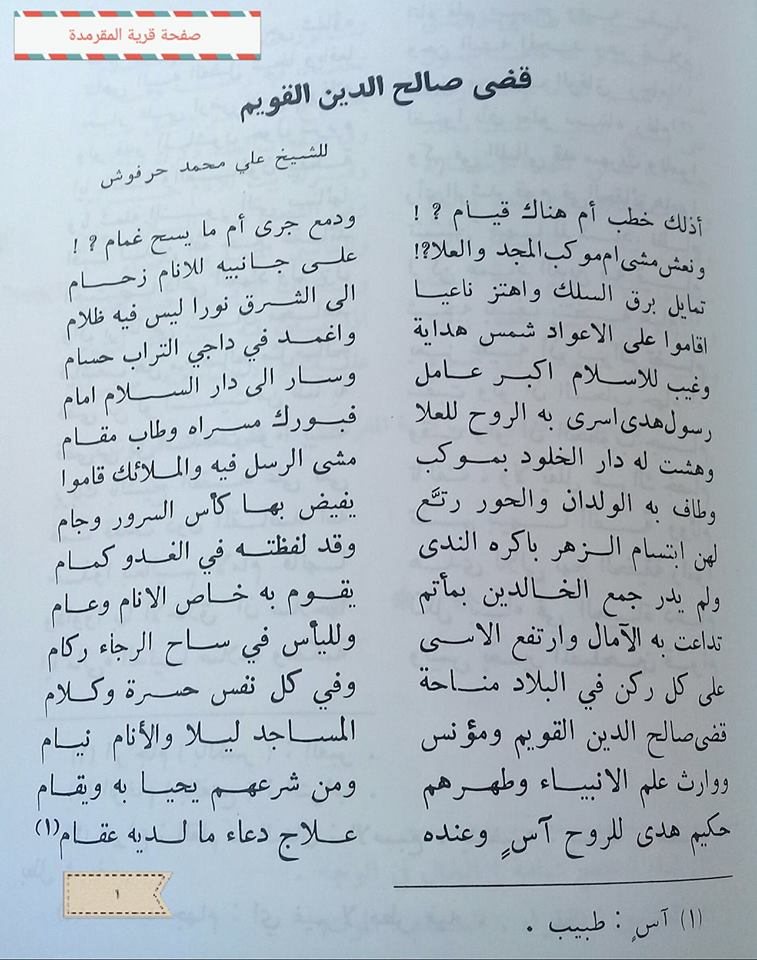 صفحة قرية المقرمدة
قضى صالح الدين القويم
للشيخ علي محمد حرفوش
أذلك خطب أم هناك قيام ? ! ودمع جرى أم ما يسح غمام ? !
ونعش مشى ام موكب المجد والعلا?! على جانبيه للانام زحام
تمايل برق السلك واهتز ناعيا الى الشرق نورا ليس فيه ظلام
اقاموا على الاعواد شمس هداية واغمد في داجي التراب حسام
وغيب للاسلام اكبر عامل وسار الى دار السلام امام
رسول هدى اسرى به الروح للعلا فبورك مسراه وطاب مقام
وهشت له دار الخلود بموكب مشى الرسل فيه والملائك قاموا
وطاف به الولدان والحور رتَّع يفيض بها كأس السرور وجام
لهن ابتسام الزهر باكره الندى وقد لفظته في الغدو كمام
ولم يدر جمع الخالدين بمأتم يقوم به خاص الانام وعام
تداعت به الآمال وارتفع الاسى ولليأس في ساح الرجاء ركام
على كل ركن في البلاد مناحة وفي كل نفس حسرة وكلام
قضى صالح الدين القويم ومؤنس المساجد ليلا والأنام نيام
ووارث علم الانبياء وطهرهم ومن شرعهم يحيا به ويقام
حكيم هدى للروح آسٍ وعنده علاج دعاء ما لديه عقام(١)
(١) آسٍ : طبيب .
١